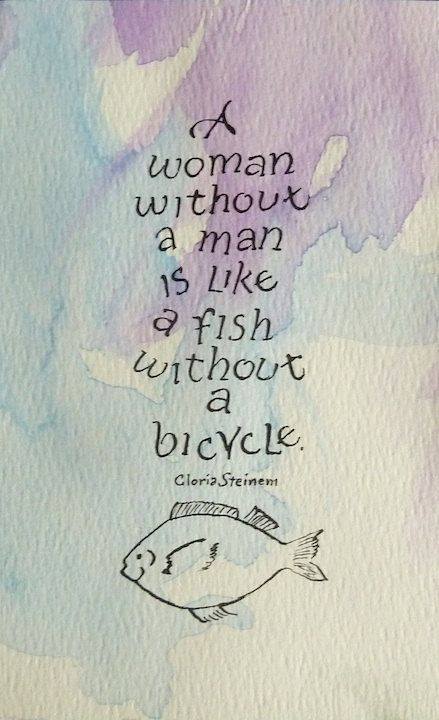 A
woman
without
a man
is like
a fish
without
a
bicycle.
Gloria Steinem